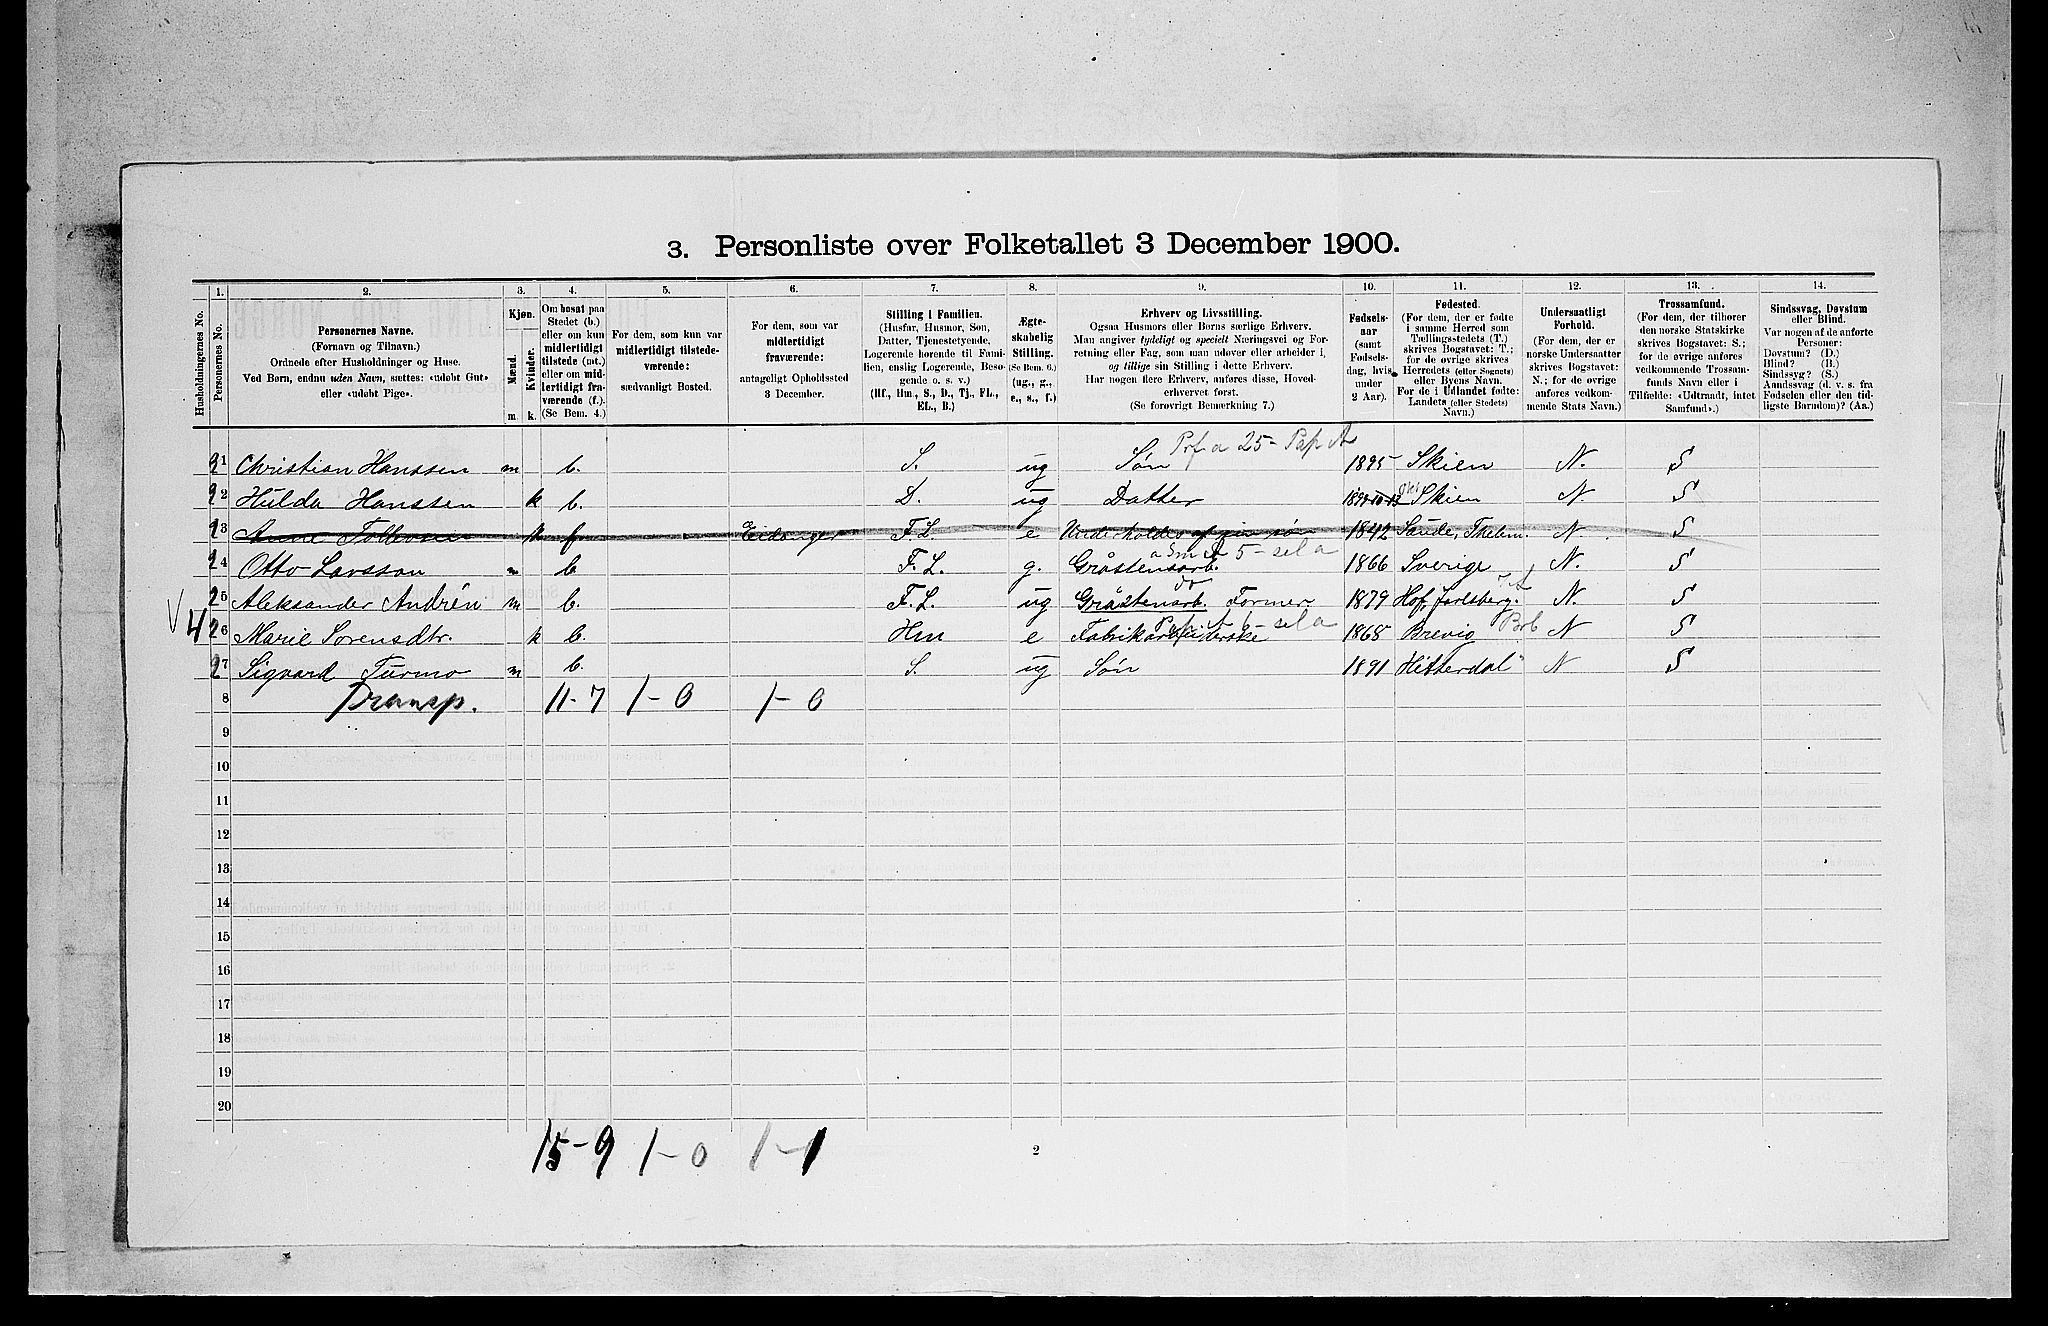 3. Personliste over Folketallet 3 December 1900.
Husholdningernes No.
1. Personernes No.
2. Personernes Navne. (Fornavn og Tilnavn.) Ordnede efter Husholdninger og Huse. Ved Børn, endnu uden Navn, sættes: «udøbt Gut» eller «udøbt Pige».
3. Kjøn. Mænd. m Kvinder. k.
4. Om bosat paa Stedet (b.) eller om kun midlertidigt tilstede (mt.) eller om midlertidigt fraværende (f.). (Se Bem. 4.)
5. For dem, som kun var midlertidigt tilstedeværende: sædvanligt Bosted.
6. For dem, som var midlertidigt fraværende: antageligt Opholdssted 3 December.
7. Stilling i Familien. (Husfar, Husmor, Søn, Datter, Tjenestetyende, Logerende hørende til Familien, enslig Logerende, Besøgende o. s. v.) (Hf., Hm., S., D., Tj., FL., EL., B.)
8. Ægteskabelig Stilling. (Se Bem. 6.) (ug., g., e., s., f.)
9. Erhverv og Livsstilling. Ogsaa Husmors eller Børns særlige Erhverv. Man angiver tydeligt og specielt Næringsvei og Forretning eller Fag, som man udøver eller arbeider i, og tillige sin Stilling i dette Erhverv. Har nogen flere Erhverv, anføres disse, Hovederhvervet først. (Se forøvrigt Bemerkning 7.)
10. Fødselsaar (samt Fødselsdag, hvis under 2 Aar).
11. Fødested. (For dem, der er fødte i samme Herred som Tællingsstedets (T.) skrives Bogstavet: T.; for de øvrige skrives Herredets (eller Sognets) eller Byens Navn. For de i Udlandet fødte: Landets (eller Stedets) Navn.)
12. Undersaatligt Forhold. (For dem, der er norske Undersaatter skrives Bogstavet: N.; for de øvrige anføres vedkommende Stats Navn.)
13. Trossamfund. (For dem, der tilhører den norske Statskirke skrives Bogstavet: S.; for de øvrige anføres vedkommende Trossamfunds Navn eller i Tilfælde: «Udtraadt, intet Samfund».)
14. Sindssvag, Døvstum eller Blind. Var nogen af de anførte Personer: Døvstum? (D.) Blind? (B.) Sindssyg? (S.) Aandssvag (d. v. s. fra Fødselen eller den tidligste Barndom)? (Aa.)
21 Christian Hanssen m b. S. ug Søn 25- Pap A 1895 Skien N. S
22 Hulda Hanssen k b. D. ug Datter Skien N. S
23 Anne k f Eidanger F L e 1842 Saude, Thelem. N. S
24 Otto Larsson m b. F. L. g. Gråstensarb. 5- sela 1866 Sverige N. S
25 Aleksander Andrén m b. F. L. ug Gråstenarb. Former 1879 Hof, Jarlsberg. N. S
4 26 Marie Sorensdtr. k b. Hm e Fabrikarbeiderske Pap A 6- sela 1868 Brevig N S
27 Sigvard Turmo m b. S. ug Søn 1891 Hitterdal N S
8 Transp. 11-7 1-0 1-0
9
10
11
12
13
14
15
16
17
18
19
20
15-9 1-0 1-1
2